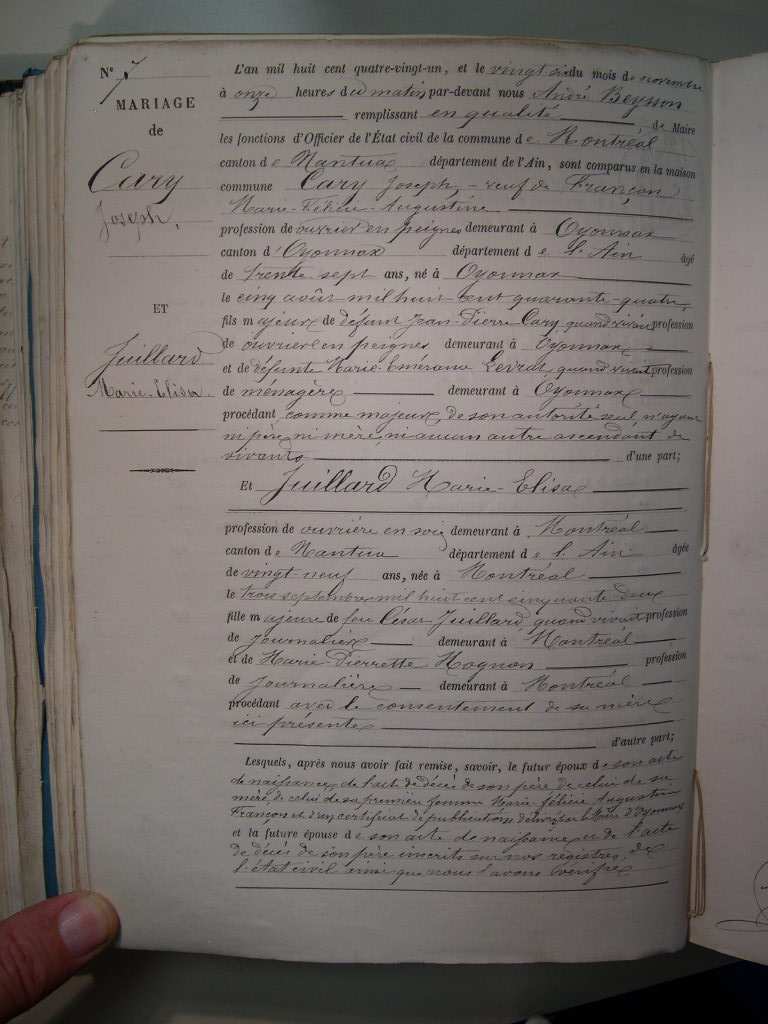 N° 7
MARIAGE
de
Cary
Joseph,
ET
Juillard
Marie-Elisa
L'an mil huit cent quatre-vingt-un, et le vingt six du mois de novembre
à onze heures du matin, par-devant nous André Beysson
remplissant en qualité de Maire
les fonctions d'Officier de l'État civil de la commune de Montréal
canton de Nantua département de l'Ain, sont comparus en la maison
commune Cary Joseph, veuf de Françon
Marie-Félicie-Augustine
profession de ouvrier en peignes demeurant à Oyonnax
canton d'Oyonnax département de l'Ain âgé
de trente sept ans, né à Oyonnax
le cinq août mil huit cent quarante-quatre,
fils majeur de défunt Jean-Pierre Cary, quand vivait profession
de ouvrier en peignes demeurant à Oyonnax
et de défunte Marie-Emérance Levrat, quand vivait profession
de ménagère demeurant à Oyonnax
procédant comme majeur, de son autorité seul, n'ayant
ni père, ni mère, ni aucun autre ascendant de
vivants d'une part;
Et Juillard Marie-Elisa
profession de ouvrière en soie demeurant à Montréal
canton de Nantua département de l'Ain âgée
de vingt-neuf ans, née à Montréal
le trois septembre mil huit cent cinquante deux
fille majeure de feu César Juillard, quand vivait profession
de journalier demeurant à Montréal
et de Marie-Pierrette Hognon profession
de journalière demeurant à Montréal
procédant avec le consentement de sa mère
ici présente
d'autre part;
Lesquels, après nous avoir fait remise, savoir, le futur époux de son acte
de naissance, de l'acte de décès de son père, de celui de sa
mère, de celui de sa première femme Marie félicie Augustine
Françon et d'un certificat de publications délivré par le Maire d'Oyonnax
et la future épouse de son acte de naissance et de l'acte
de décès de son père inscrits sur nos registres de
l'état civil ainsi que nous l'avons vérifié